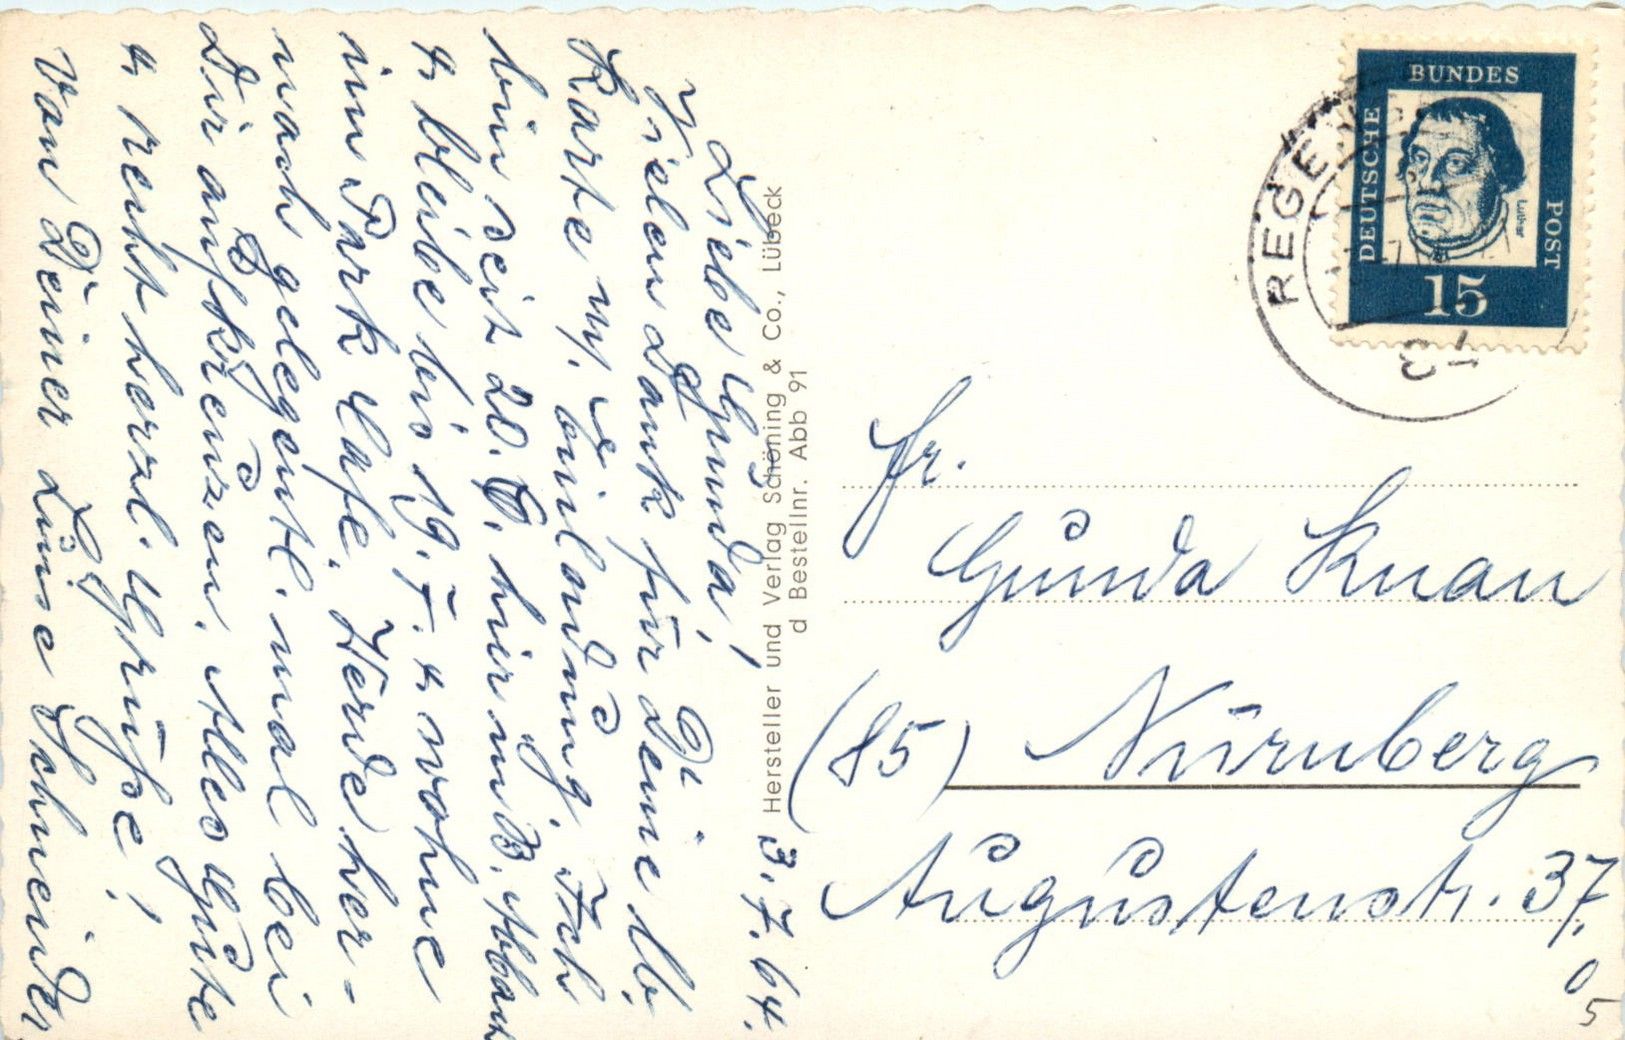 3.7.64.
Liebe Gunda!
Vielen Dank für Deine lb.
Karte m. Einladung. Ich
bin seit 20.6. hier in B. Abbach
u. bleibe bis 19.7. u. wohne
im Park Cafe. Werde her-
nach gelegentl. mal bei
Dir aufkreuzen. Alles Gute
u. recht herzl. Grüße!
Von Deiner Luise Schneider
Hersteller und Verlag Schöning & Co., Lübeck
d Bestellnr. Abb 91
BUNDES
DEUTSCHE
POST
Luther
15
REGEN
Fr.
Gunda Knau
(85) Nürnberg
Augustenstr. 37,
0
5